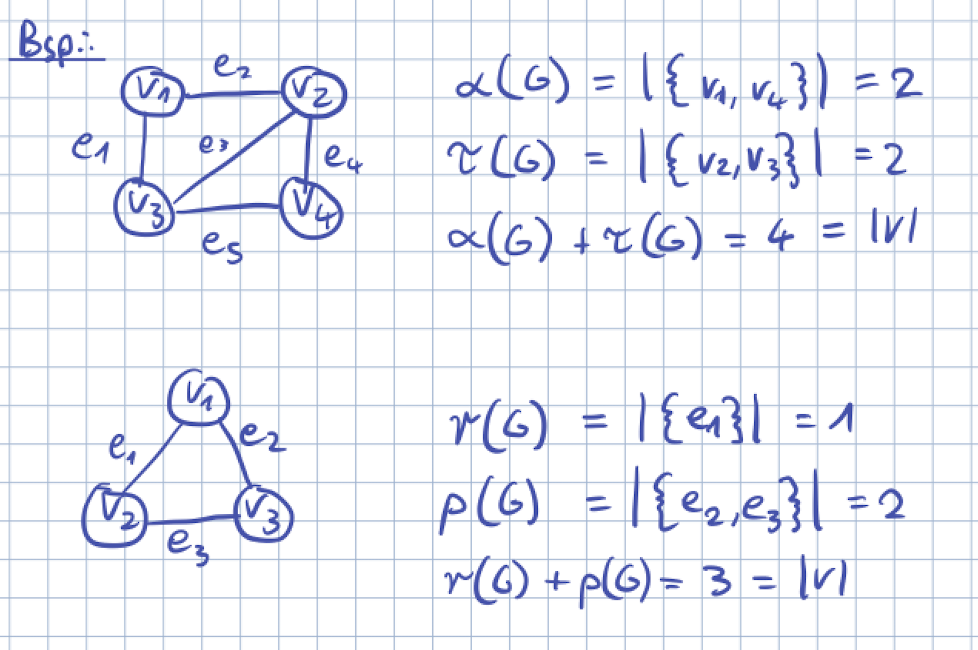 Bsp.:
v1 e2 v2
e1 e3 e4
v3 e5 v4
α(G) = |{v1, v4}| = 2
τ(G) = |{v2, v3}| = 2
α(G) + τ(G) = 4 = |V|
v1
e1 e2
v2 e3 v3
r(G) = |{e1}| = 1
ρ(G) = |{e2, e3}| = 2
r(G) + ρ(G) = 3 = |V|